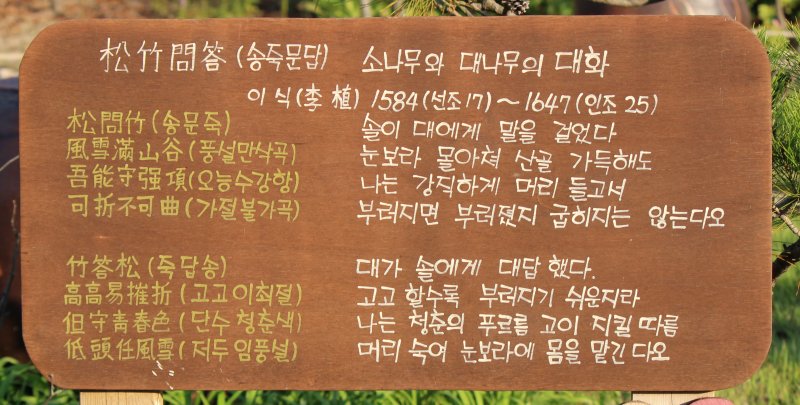 松竹問答 (송죽문답) 소나무와 대나무의 대화
이 식(李 植) 1584(선조17) ~ 1647(인조 25)
松問竹 (송문죽) 솔이 대에게 말을 걸었다
風雪滿山谷 (풍설만산곡) 눈보라 몰아쳐 산골 가득해도
吾能守强項 (오능수강항) 나는 강직하게 머리 들고서
可折不可曲 (가절불가곡) 부러지면 부러졌지 굽히지는 않는다오
竹答松 (죽답송) 대가 솔에게 대답했다.
高高易摧折 (고고이최절) 고고 할수록 부러지기 쉬운지라
但守青春色 (단수청춘색) 나는 청춘의 푸르름 고이 지킬 따름
低頭任風雪 (저두임풍설) 머리 숙여 눈보라에 몸을 맡긴 다오